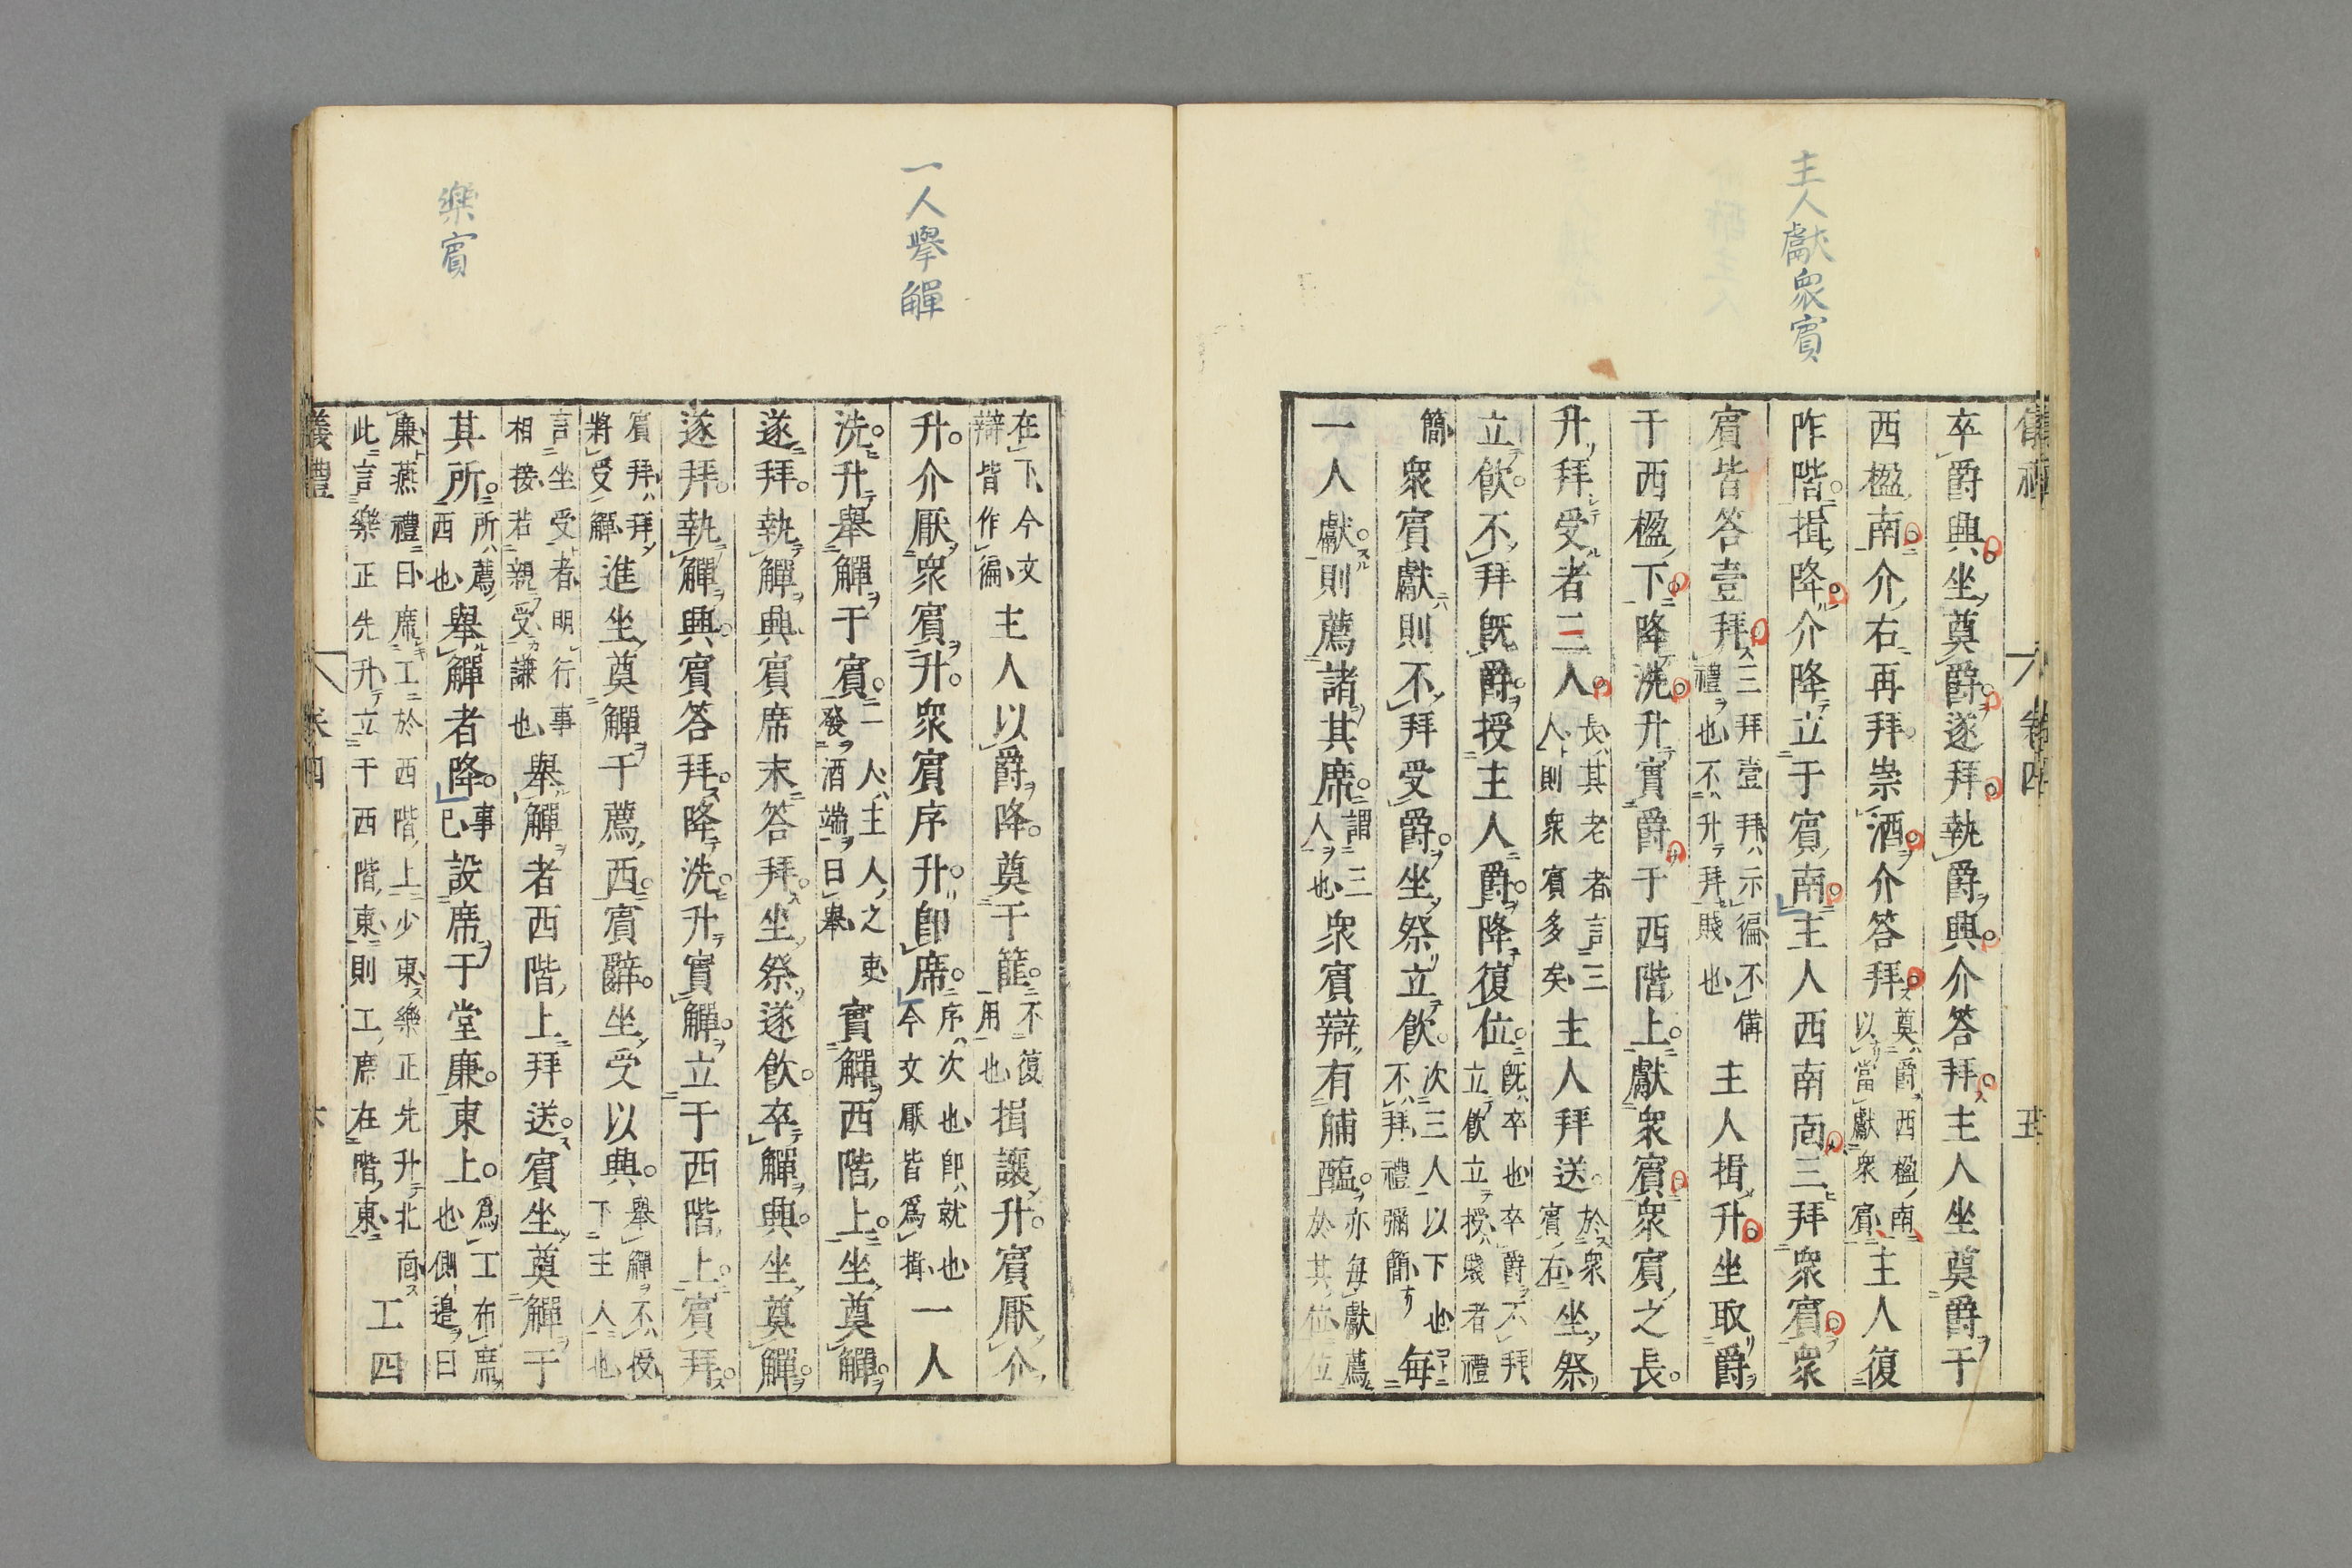 主人獻衆賓
儀禮 卷四 五
卒爵興坐奠爵遂拜執爵興介答拜主人坐奠爵于
西楹南介右再拜崇酒介答拜奠爵西楹南以當獻衆賓主人復
阼階揖降介降立于賓南主人西南面三拜衆賓衆
賓皆答壹拜三拜壹拜示徧不備禮也不升拜賤也主人揖升坐取爵
于西楹下降洗升實爵于西階上獻衆賓衆賓之長
升拜受者三人長其老者言三人則衆賓多矣主人拜送於衆賓右坐祭
立飮不拜旣爵授主人爵降復位旣卒也卒爵不拜立飮立授賤者禮
簡衆賓獻則不拜受爵坐祭立飮次三人以下也不拜禮彌簡每
一人獻則薦諸其席謂三人也衆賓辯有脯醢亦每獻薦於其位位
一人擧觶
樂賓
在下今文辯皆作徧主人以爵降奠于篚不復用也揖讓升賓厭介
升介厭衆賓升衆賓序升卽席序次也卽就也今文厭皆爲揖一人
洗升舉觶于賓一人主人之吏發酒端曰舉實觶西階上坐奠觶
遂拜執觶興賓席末答拜坐祭遂飮卒觶興坐奠觶
遂拜執觶興賓答拜降洗升實觶立于西階上賓拜
賓拜拜將受觶進坐奠觶于薦西賓辭坐受以興舉觶不授下主人也
言坐受者明行事相接若親受謙也舉觶者西階上拜送賓坐奠觶于
其所所薦西也舉觶者降事已設席于堂廉東上爲工布席也側邉曰
廉燕禮曰席工於西階上少東樂正先升北面此言樂正先升立于西階東則工席在階東工四
儀禮 卷四 六